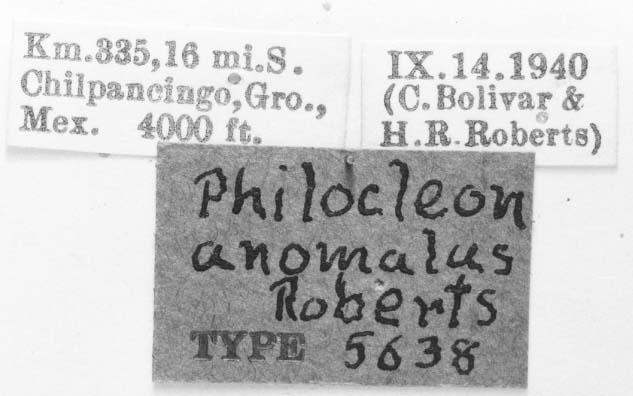 Km.335,16 mi.S.
Chilpancingo,Gro.,
Mex. 4000 ft.
IX.14.1940
(C.Bolivar &
H.R.Roberts)
Philocleon
anomalus
Roberts
TYPE 5638